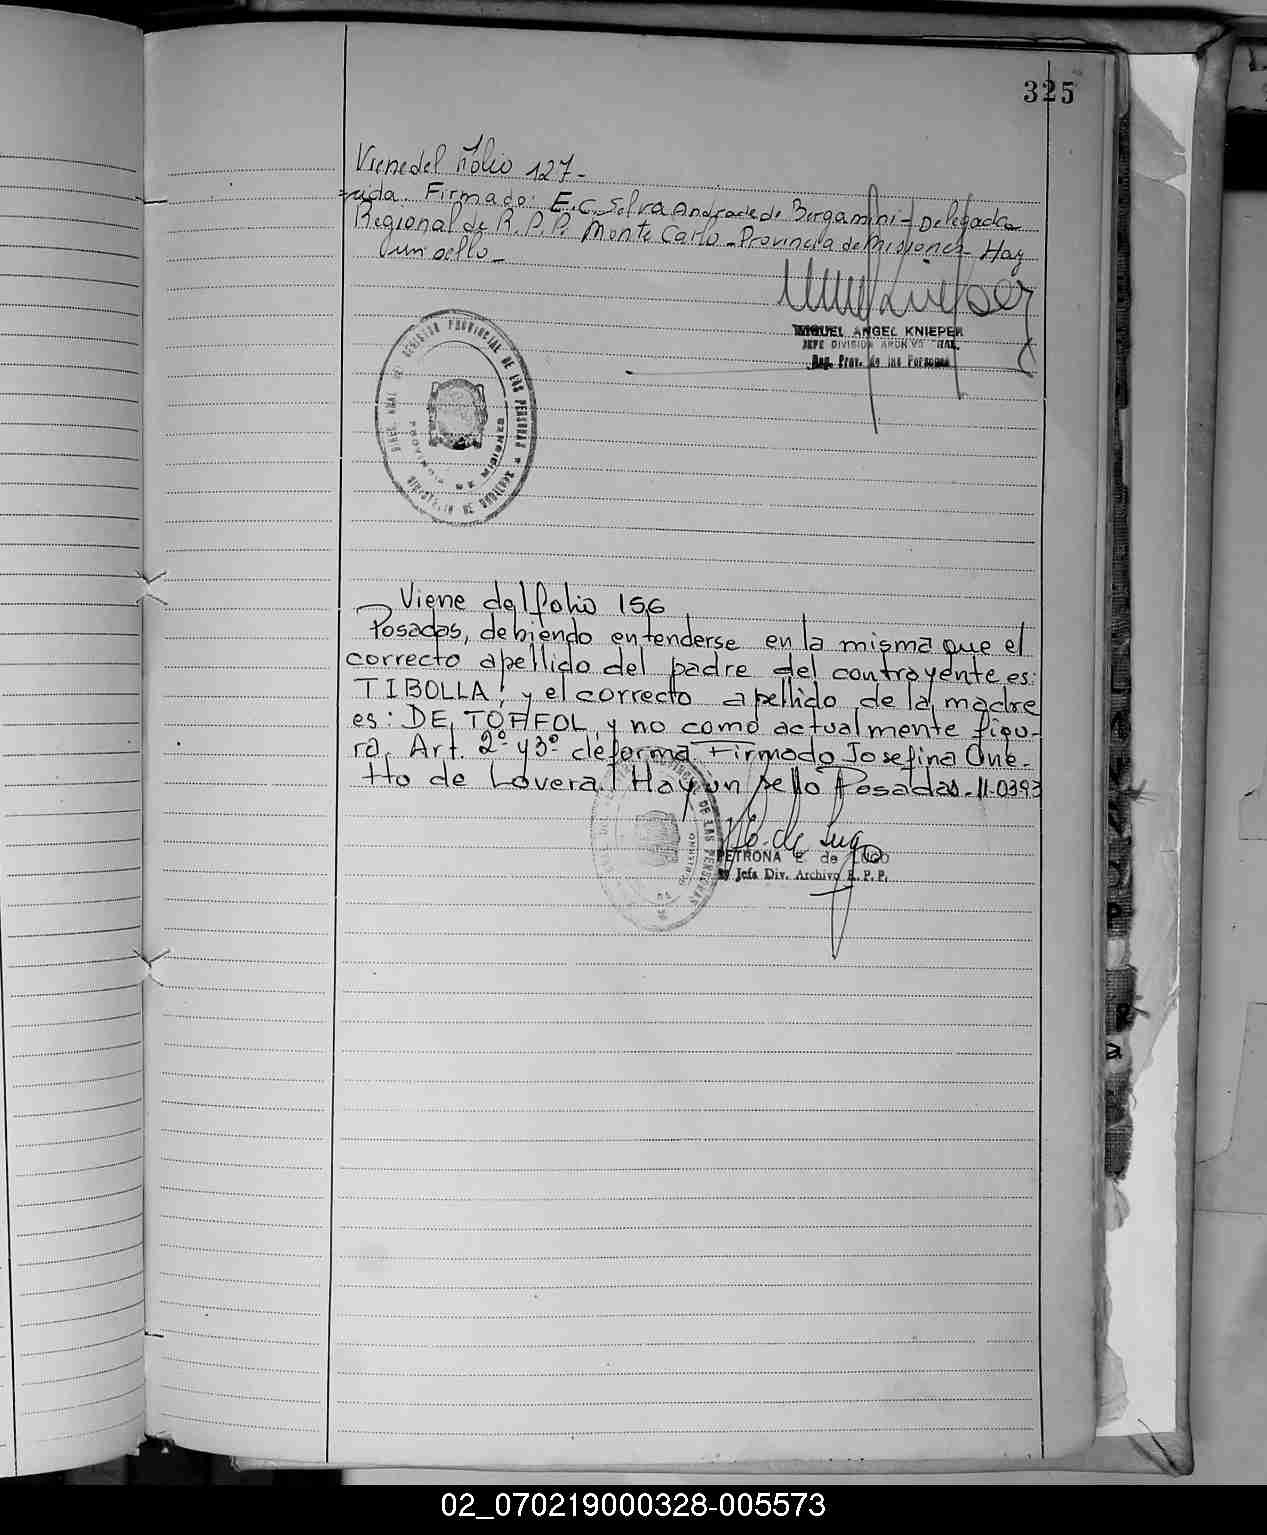 325
Viene del Folio 127-
rada. Firmado: E.C. Selva Andrade de Bergamini - Delegada
Regional de R.P.P. Monte Carlo - Provincia de Misiones - Hay
un sello -
MIGUEL ANGEL KNIEPER
JEFE DIVISION ARCHIVO GRAL.
Reg. Prov. de las Personas
PROVINCIAL DE LAS PERSONAS
PROVINCIA DE MISIONES
Viene del folio 156
Posadas, debiendo entenderse en la misma que el
correcto apellido del padre del contrayente es:
TIBOLLA; y el correcto apellido de la madre
es: DE TOFFOL, y no como actualmente figu-
ra. Art. 2º y 3º de forma. Firmado Josefina One-
tto de Lovera. Hay un sello Posadas - 11-03-93
DE LAS PERSONAS
GOBIERNO
PETRONA E. de LUGO
Jefa Div. Archivo R. P. P.
02_070219000328-005573